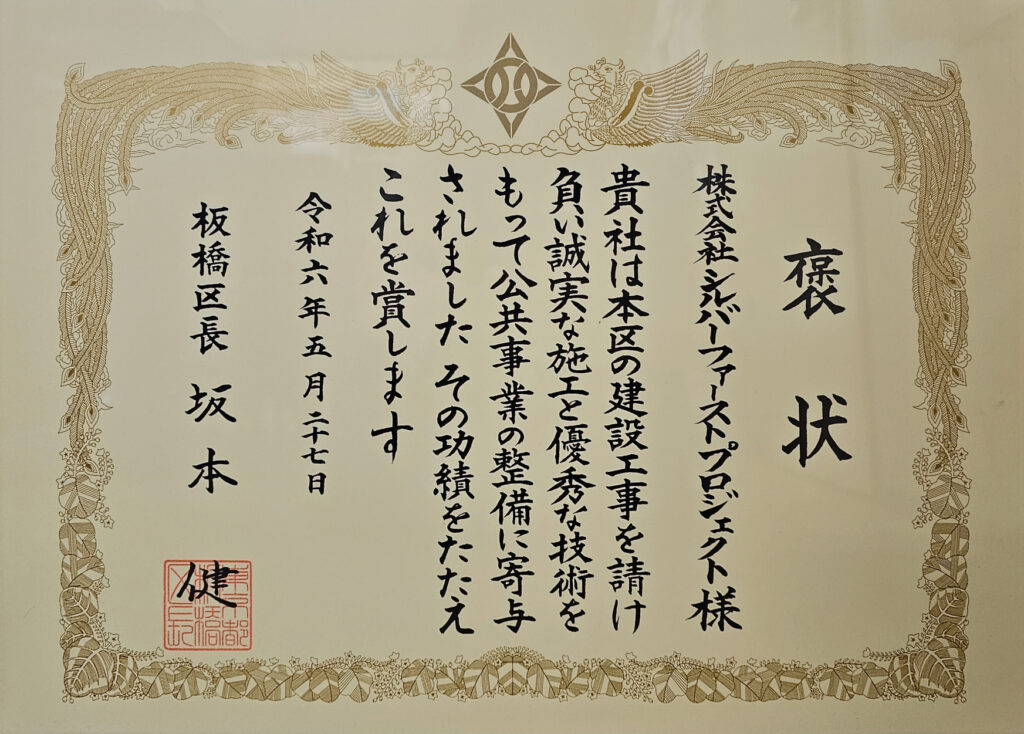 褒状
株式会社シルバーファーストプロジェクト様
貴社は本区の建設工事を請け
負い誠実な施工と優秀な技術を
もって公共事業の整備に寄与
されました その功績をたたえ
これを賞します
令和六年五月二十七日
板橋区長 坂本 健